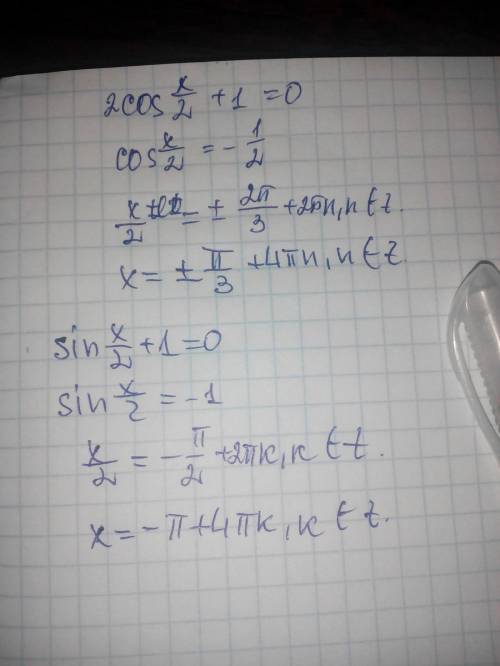 2cos x/2 + 1 = 0
cos x/2 = - 1/2
x/2 = ± 2π/3 + 2πn, n ∈ z.
x = ± π/3 + 4πn, n ∈ z
sin x/2 + 1 = 0
sin x/2 = -1
x/2 = - π/2 + 2πк, к ∈ z.
x = - π + 4πк, к ∈ z.